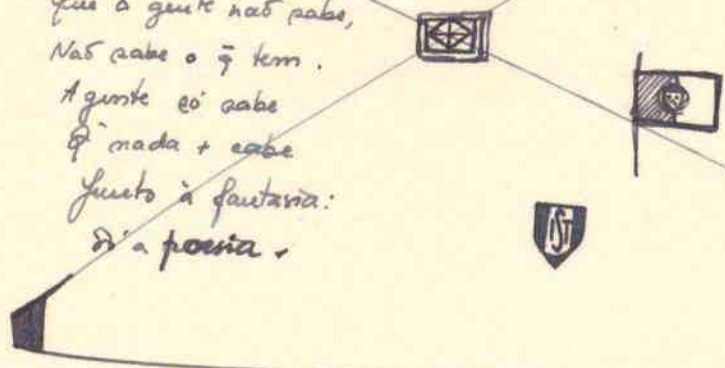 que a gente não sabe,
Não sabe o q̃ tem.
A gente só sabe
Q̃ nada + cabe
Junto à fantasia:
Só a poesia.
IST